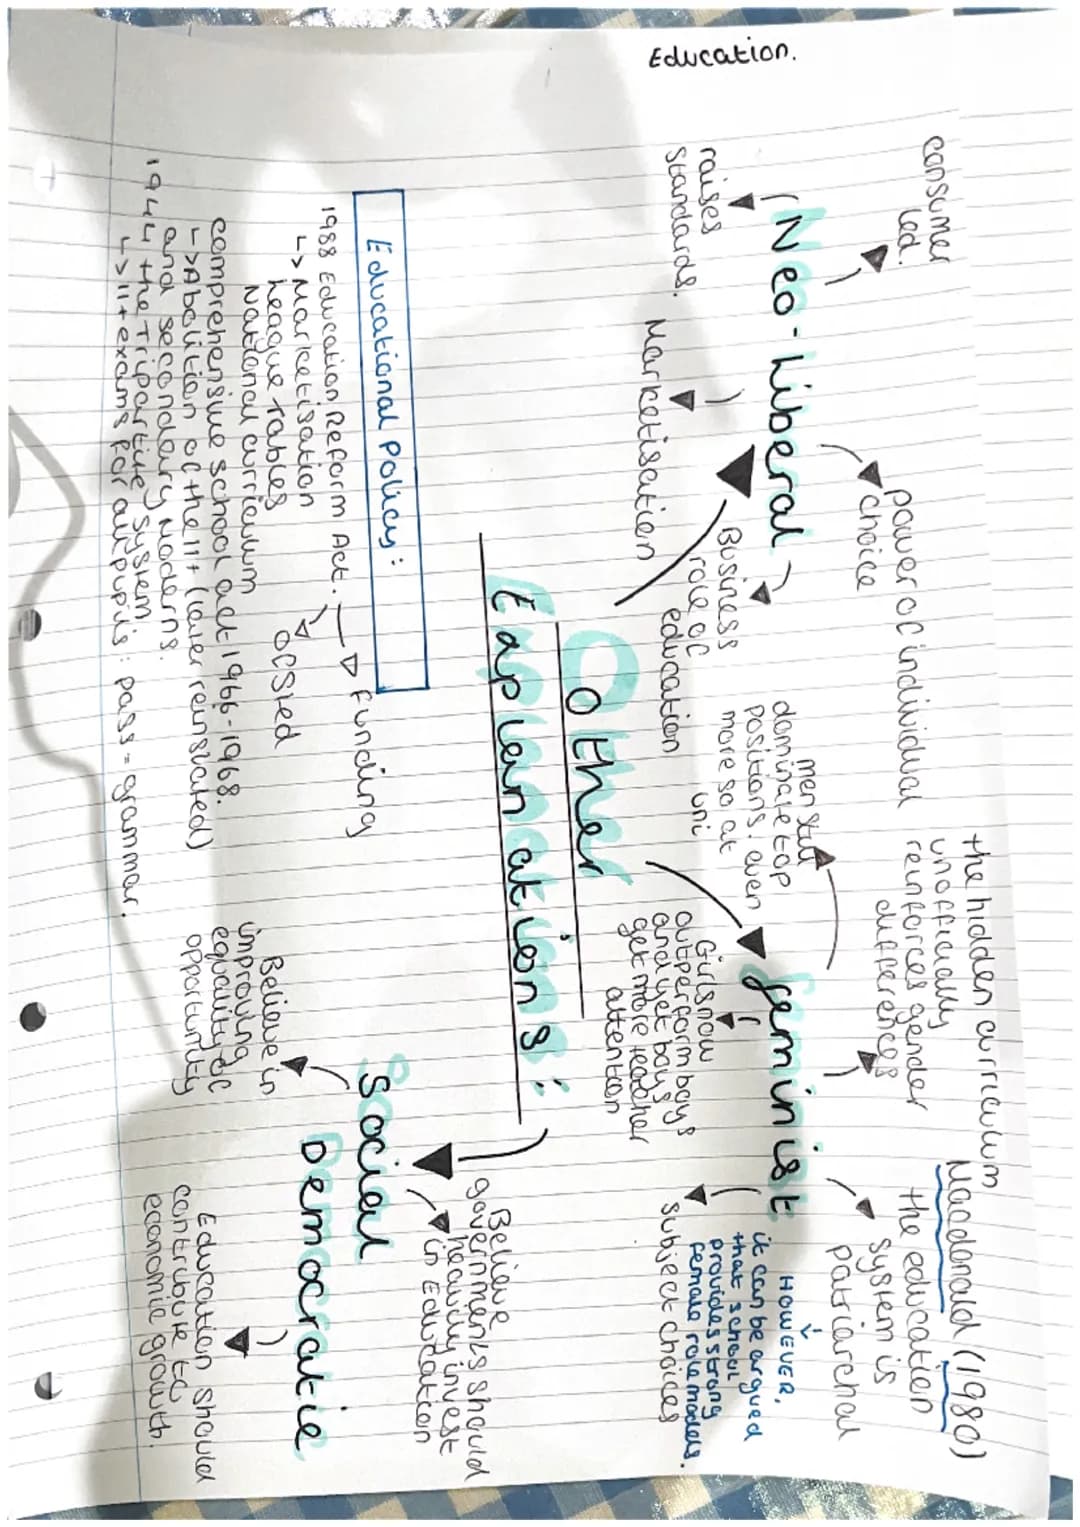 Education.
consumer
led.
Neo-Liberal
raises
standards.
Marketisation
power of individual
choice
Business
role of
education
Other
Explanations:
Feminist
men still
dominate top
positions. even
more so at
uni
the hidden curriculum
unofficially
reinforces gender
differences
Macdonald (1980)
the education
system is
patriarchal
Girls now
outperform boys
and yet boys
get more teacher
attention
subject choices
HOWEVER,
it can be argued
that school
provides strong
female role models.
Social
Democratic
Believe
governments should
heavily invest
in Education
Believe in
improving
equality of
opportunity
Education should
contribute to
economic growth.
Educational Policy:
1988 Education Reform Act. → Funding
↳ Marketisation
League tables
National curriculum
OFSted
comprehensive school act 1966-1968.
↳ Abolition of the 11+ (later reinstated)
and secondary Moderns.
1944 the Tripartite system
↳ 11+ exams for all pupils: pass = grammar.